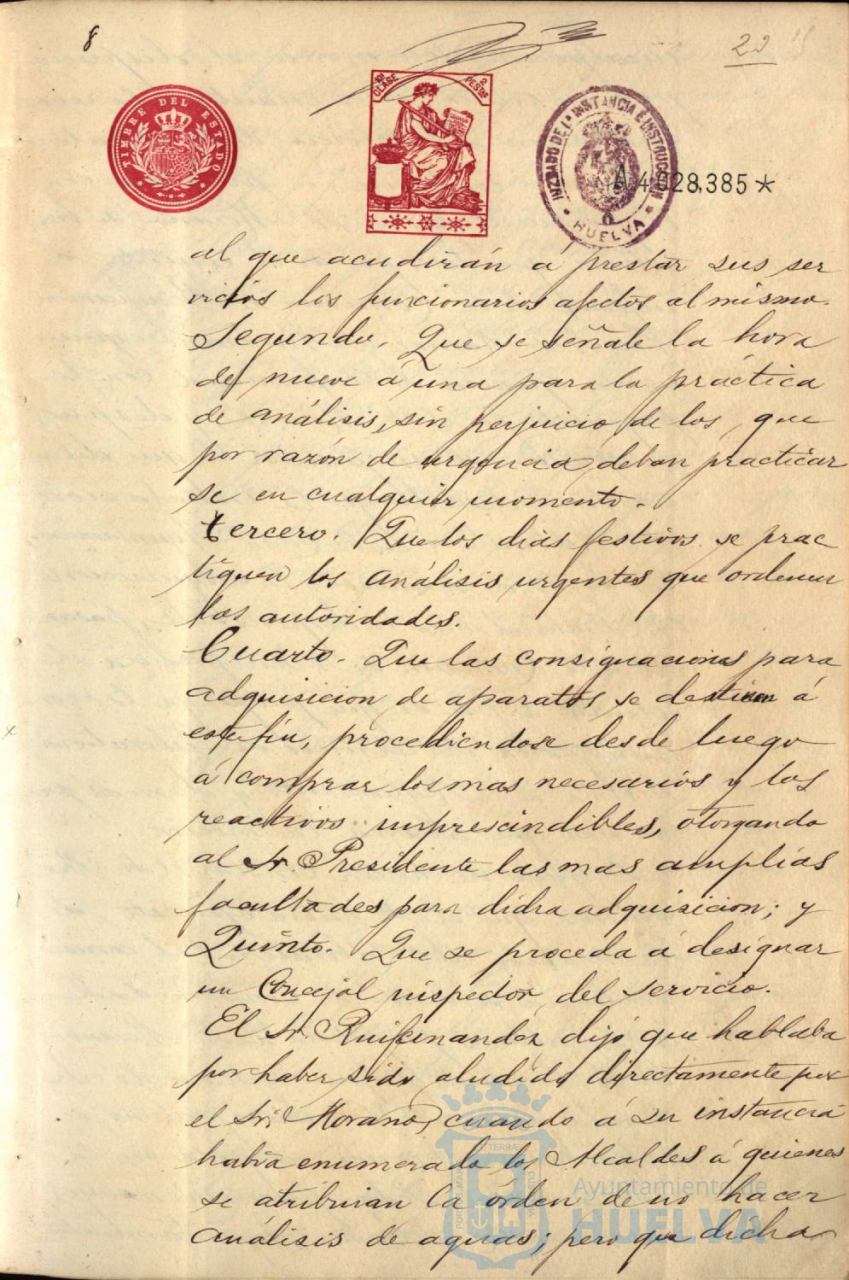 8
22
TIMBRE DEL ESTADO
CLASE
2 PESETAS
JUZGADO DE 1ª INSTANCIA E INSTRUCCION
HUELVA
A4028,385*
al que acudirán á prestar sus ser
vicios los funcionarios afectos al mismo.
Segundo. Que se señale la hora
de nueve á una para la práctica
de análisis, sin perjuicio de los que
por razón de urgencia deban practicar
se en cualquier momento.
tercero. Que los dias festivos se prac
tiquen los análisis urgentes que ordenen
las autoridades.
Cuarto. Que las consignaciones para
adquisicion de aparatos se destinen á
este fin, procediendose desde luego
á comprar los mas necesarios y los
reactivos imprescindibles, otorgando
al Sr. Presidente las mas amplias
facultades para dicha adquisicion; y
Quinto. Que se proceda á designar
un Concejal inspector del servicio.
El Sr. Ruifernandez dijó que hablaba
por haber sido aludido directamente por
el Sr. Morano, cuando á su instancia
habia enumerado los Alcaldes á quienes
se atribuian la orden de no hacer
análisis de aguas; pero que dicha
Ayuntamiento de
HUELVA